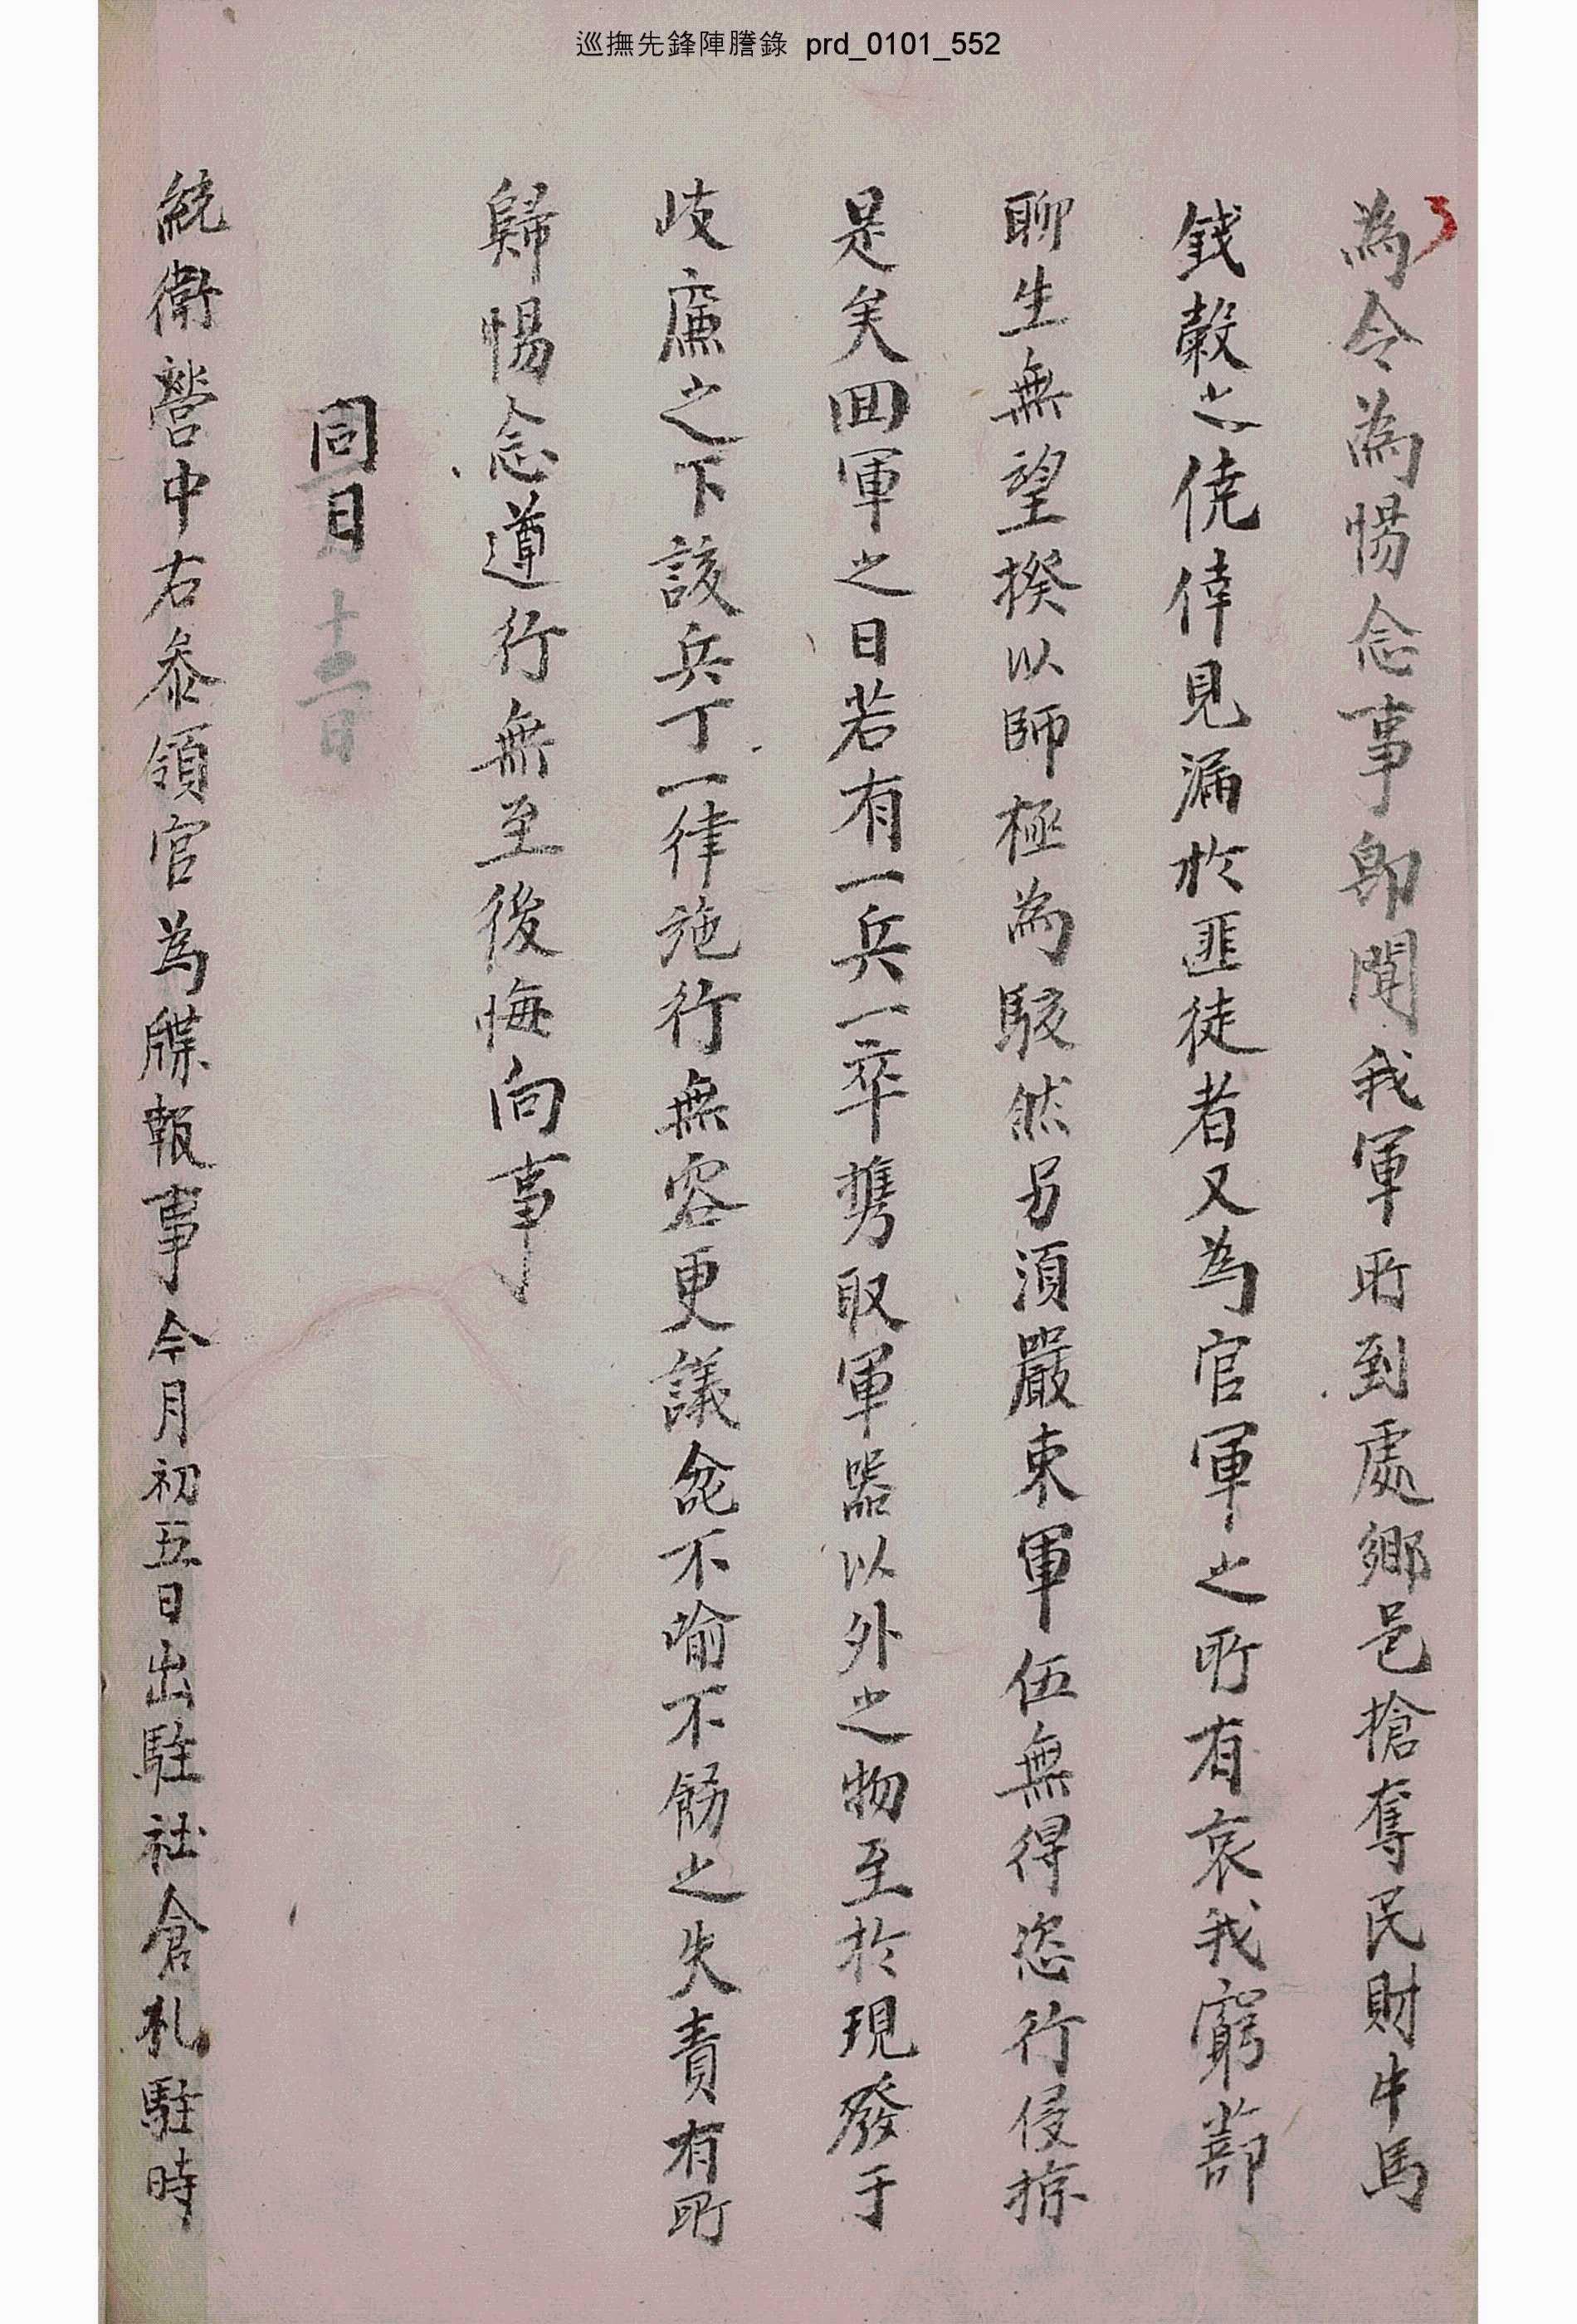 巡撫先鋒陣謄錄 prd_0101_552
為令為惕念事卽聞我軍所到處鄉邑搶奪民財牛馬
錢穀之僥倖見漏於匪徒者又為官軍之所有哀我窮蔀
聊生無望揆以師極為駭然另湏嚴束軍伍無得恣行侵掠
是矣囬軍之日若有一兵一卒携取軍器以外之物至於現發于
歧廉之下該兵丁一律施行無容更議兺不喻不飭之失責有所
歸惕念遵行無至後悔向事
同日
統衛營中右叅領官為牒報事今月初五日出駐社倉札駐時